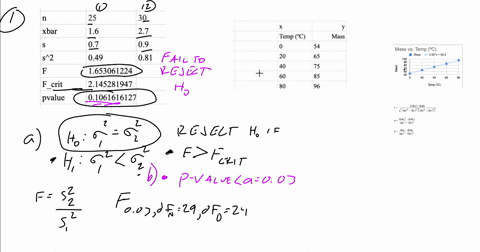 ①
① ②
n 25 30
xbar 1.6 2.7
s 0.7 0.9
s^2 0.49 0.81
F 1.653061224
F_crit 2.145281947
pvalue 0.1061616127
FAIL TO
REJECT
H₀
x y
Temp (°C) Mass
0 54
20 65
40 75
60 85
80 96
Mass vs. Temp (°C)
a) H₀: σ₁² = σ₂²
H₁: σ₁² < σ₂²
REJECT H₀ IF
• F > F_CRIT
b) • P-VALUE < α = 0.03
F = S₂² / S₁²
F 0.03, dF_N = 29, dF_D = 24